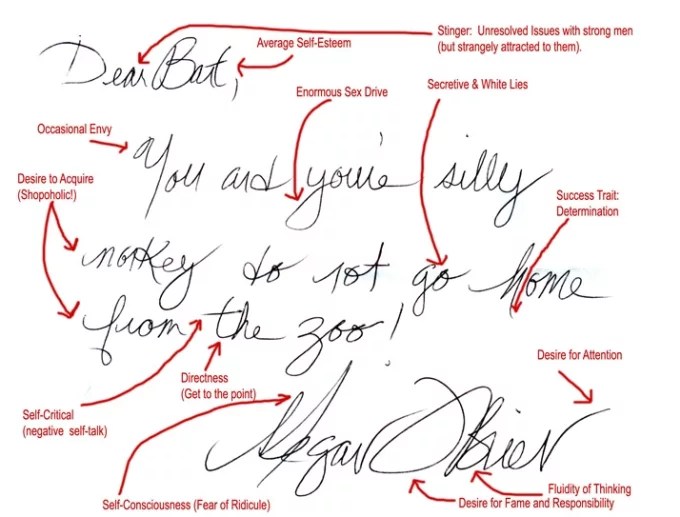 Stinger: Unresolved Issues with strong men
(but strangely attracted to them).
Average Self-Esteem
Dear Bart,
Secretive & White Lies
Enormous Sex Drive
Occasional Envy
You and you're silly
Desire to Acquire
(Shopoholic!)
Success Trait:
Determination
monkey do not go home
from the zoo!
Desire for Attention
Directness
(Get to the point)
Self-Critical
(negative self-talk)
Megan O'Brien
Fluidity of Thinking
Self-Consciousness (Fear of Ridicule)
Desire for Fame and Responsibility